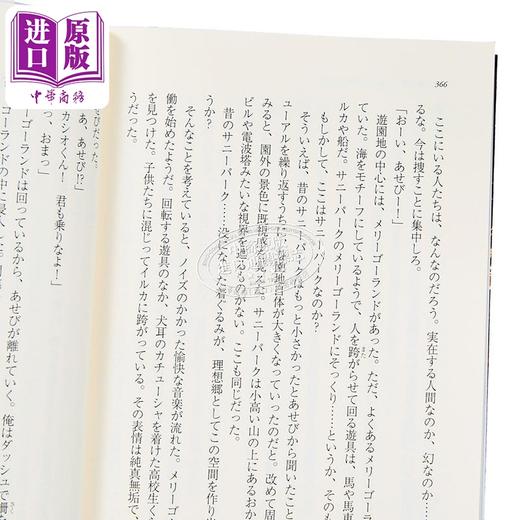 原版
进口
中華商務
366
ここにいる人たちは、なんなのだろう。実在する人間なのか、幻なのか……
るな。今は捜すことに集中しろ。
「おーい、あせびー！」
遊園地の中心には、メリーゴーランドがあった。ただ、よくあるメリーゴーラン
ていた。海をモチーフにしているようで、人を跨がらせて回る遊具は、馬や馬車
ルカや船だ。サニーパークのメリーゴーランドにそっくり……というか、そのま
もしかして、ここはサニーパークなのか？
そういえば、昔のサニーパークはもっと小さかったとあせびから聞いたこと
ューアルを繰り返すうちに
園地自体が大きくなっていったのだと。改めて周
みると、園外の景色に既視感を覚えた。サニーパークは小高い山の上にあるおか
ビルや電波塔みたいな視界を遮るものがない。ここも同じだった。
昔のサニーパーク……没になった着ぐるみが、理想郷としてこの空間を作り出
うか？
そんなことを考えていると、ノイズのかかった愉快な音楽が流れた。メリーゴー
働を始めたようだ。回転する遊具のなか、犬耳のカチューシャを着けた高校生くら
を見つけた。子供たちに混じってイルカに跨がっている。その表情は純真無垢で、
うだった。
せびだった。
あ、あせび!?」
カシオくん！　君も乗りなよ！」
っ、おまっ」
ゴーランドは回っているから、あせびが離れていく。俺はダッシュで柵
ーゴーランドの中に